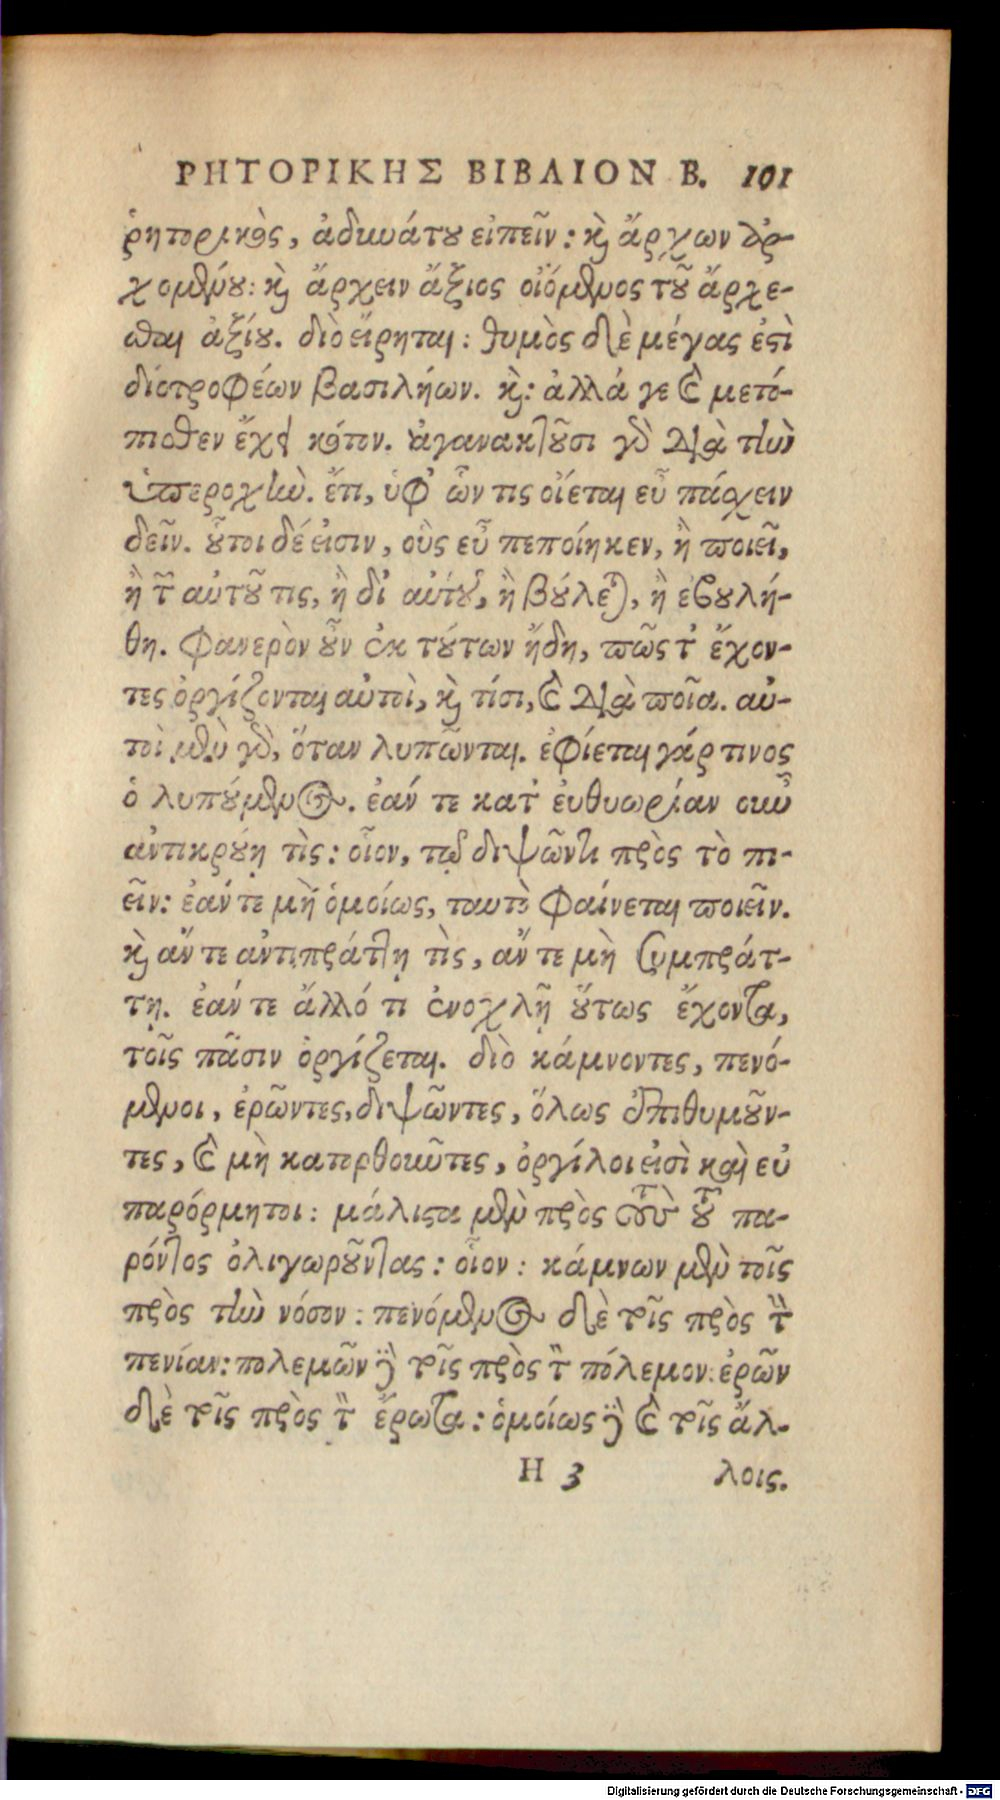 ΡΗΤΟΡΙΚΗΣ ΒΙΒΛΙΟΝ Β. 101
ῥητορικὸς, ἀδυνάτου εἰπεῖν: καὶ ἄρχων ἀρ-
χομένου: καὶ ἄρχειν ἄξιος οἰόμενος τοῦ ἄρχε-
σθαι ἀξίου. διὸ εἴρηται: θυμὸς δὲ μέγας ἐστὶ
διοτροφέων βασιλήων. καὶ: ἀλλά γε καὶ μετό-
πισθεν ἔχει κότον. ἀγανακτοῦσι γὰρ διὰ τὴν
ὑπεροχήν. ἔτι, ὑφ' ὧν τις οἴεται εὖ πάσχειν
δεῖν. οὗτοι δέ εἰσιν, οὓς εὖ πεποίηκεν, ἢ ποιεῖ,
ἢ τῶν αὐτοῦ τις, ἢ δι' αὐτοῦ, ἢ βούλεται, ἢ ἐβουλή-
θη. Φανερὸν οὖν ἐκ τούτων ἤδη, πῶς τ' ἔχον-
τες ὀργίζονται αὐτοὶ, καὶ τίσι, καὶ διὰ ποῖα. αὐ-
τοὶ μὲν γὰρ, ὅταν λυπῶνται. ἐφίεται γάρ τινος
ὁ λυπούμενος. ἐάν τε κατ' εὐθυωρίαν οὖν
ἀντικρούῃ τὶς: οἷον, τῷ διψῶντι πρὸς τὸ πι-
εῖν: ἐάν τε μὴ ὁμοίως, ταυτὸ φαίνεται ποιεῖν.
καὶ ἄν τε ἀντιπράττῃ τὶς, ἄν τε μὴ συμπράτ-
τῃ. ἐάν τε ἄλλό τι ἐνοχλῇ οὕτως ἔχοντα,
τοῖς πᾶσιν ὀργίζεται. διὸ κάμνοντες, πενό-
μενοι, ἐρῶντες, διψῶντες, ὅλως ἐπιθυμοῦν-
τες, καὶ μὴ κατορθοῦντες, ὀργίλοι εἰσὶ καὶ εὐ
παρόρμητοι: μάλιστα μὲν πρὸς τοὺς τοῦ πα-
ρόντος ὀλιγωροῦντας: οἷον: κάμνων μὲν τοῖς
πρὸς τὴν νόσον: πενόμενος δὲ τοῖς πρὸς τὴν
πενίαν: πολεμῶν δὲ τοῖς πρὸς τὸν πόλεμον: ἐρῶν
δὲ τοῖς πρὸς τὸν ἔρωτα: ὁμοίως δὲ καὶ τοῖς ἄλ-
Η 3 λοις.
Digitalisierung gefördert durch die Deutsche Forschungsgemeinschaft - DFG